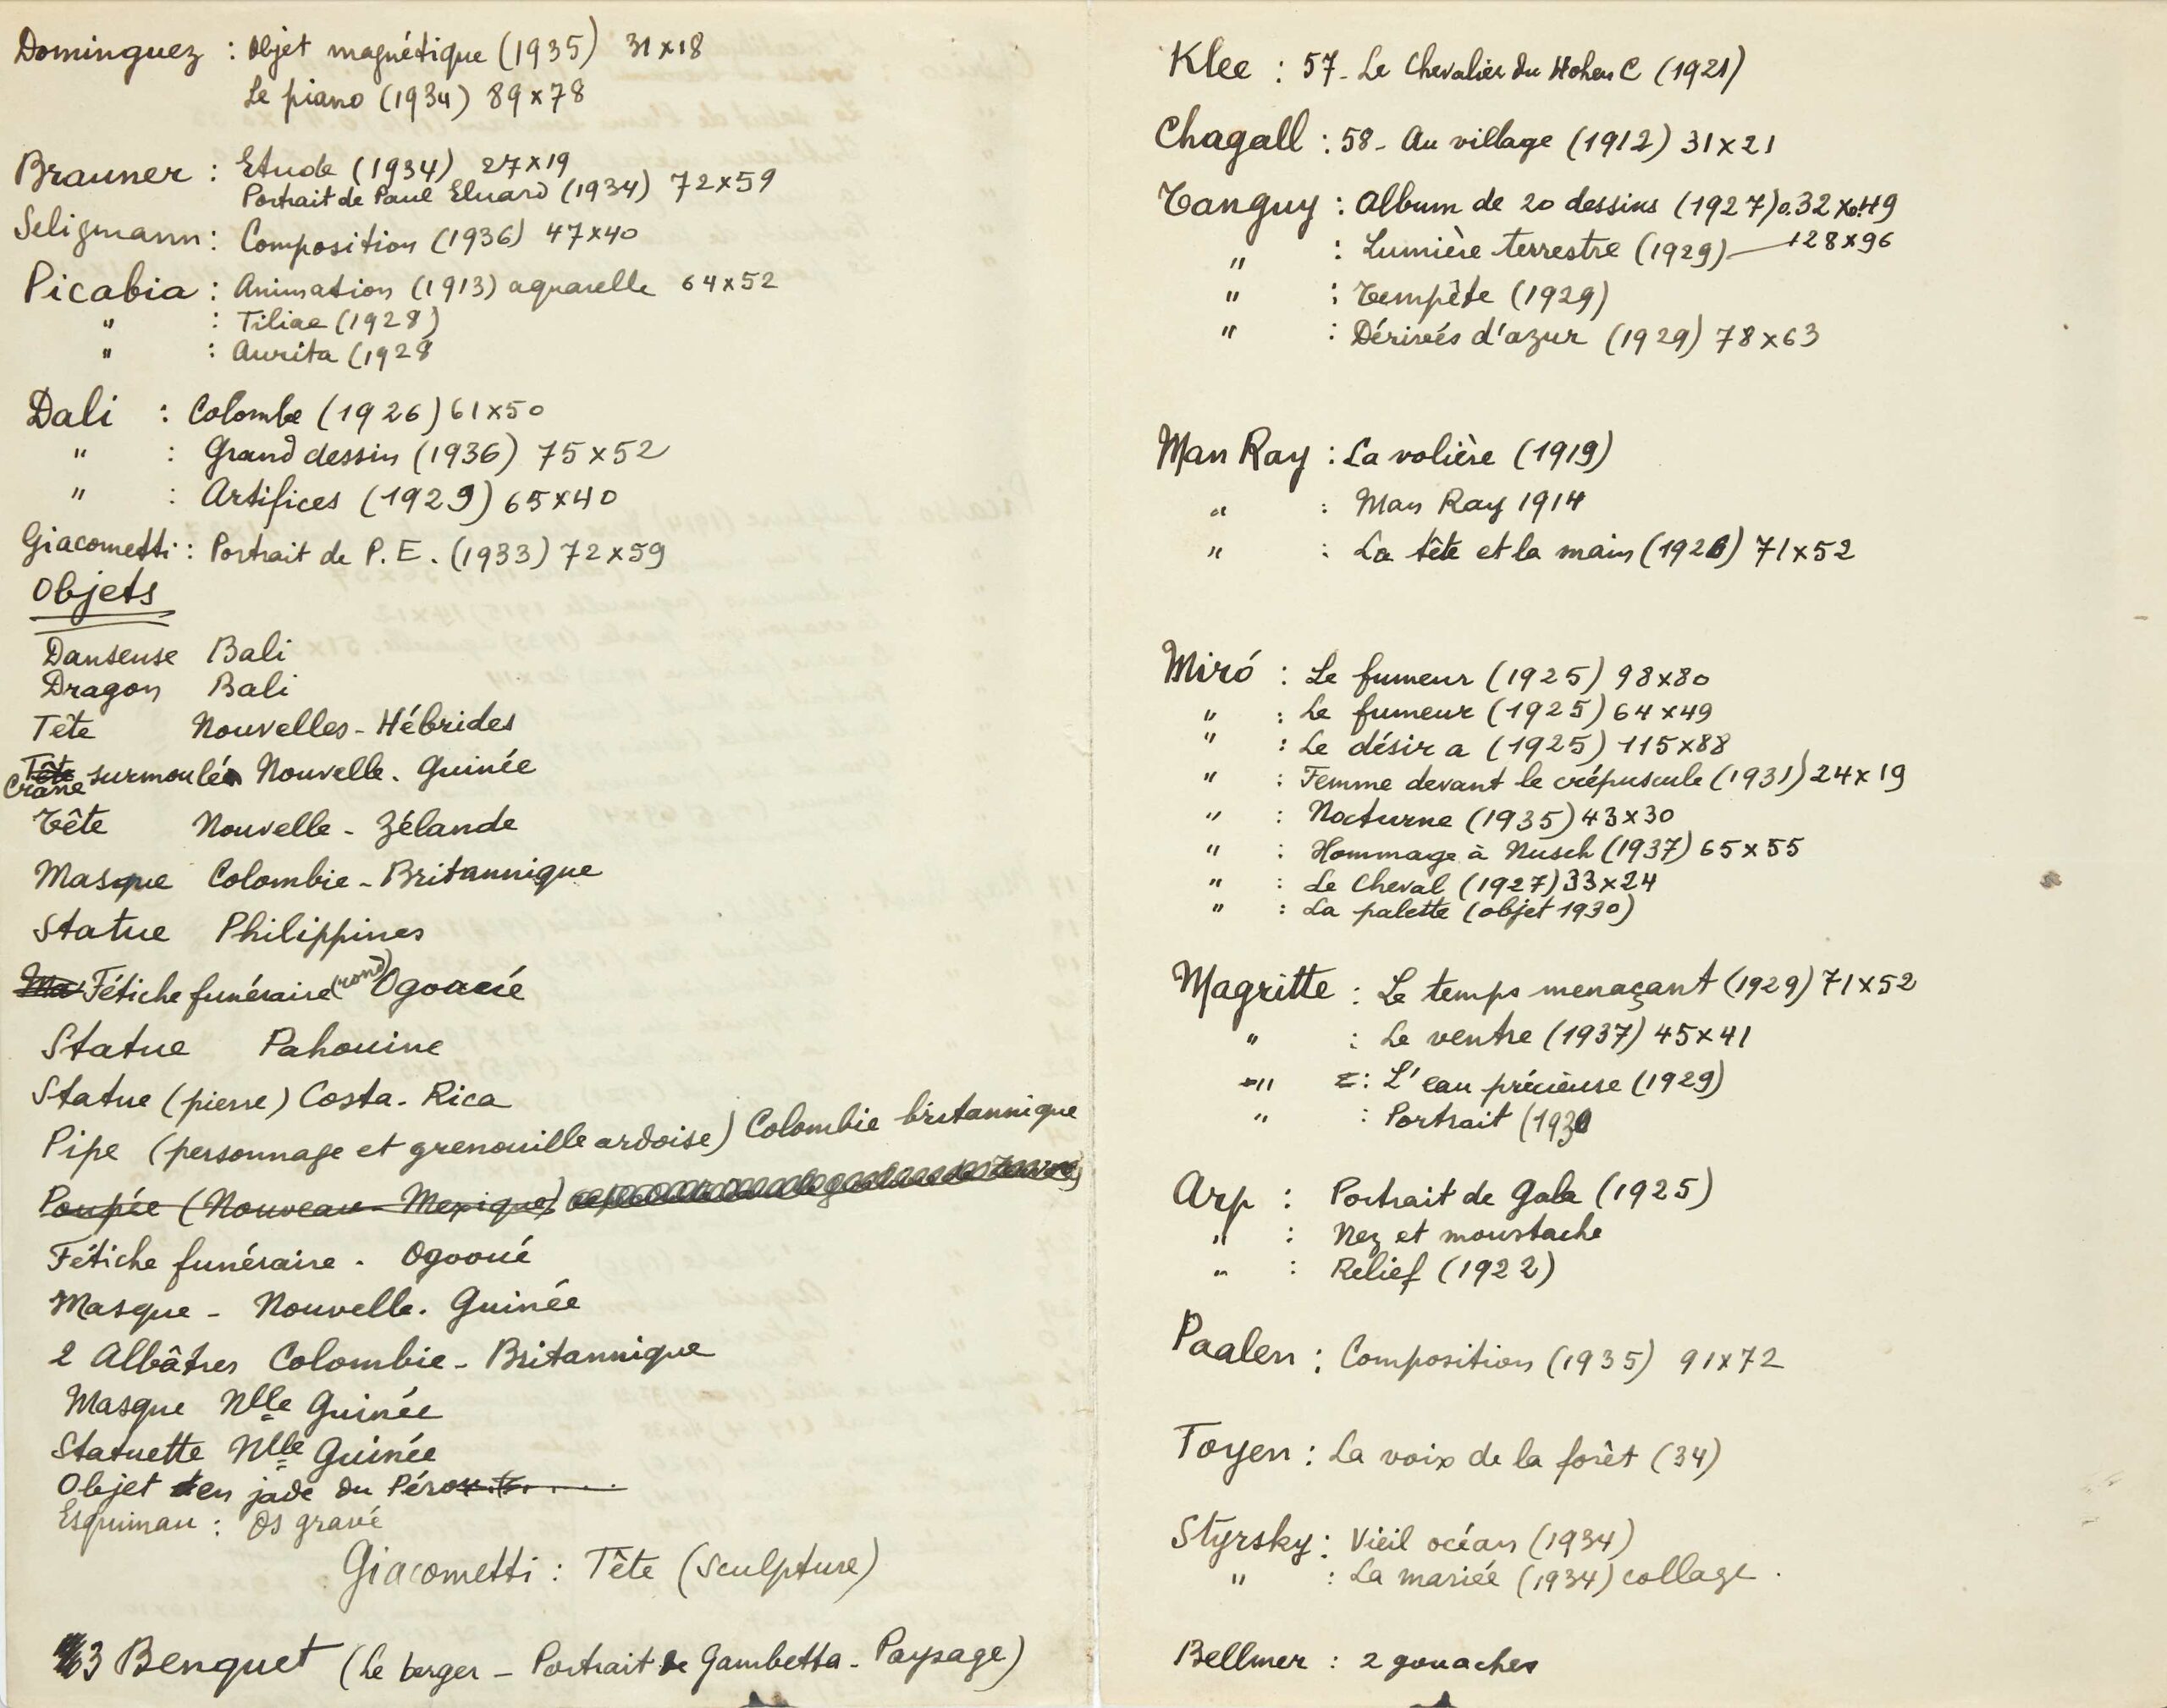 Dominguez : Objet magnétique (1935) 31x18
Le piano (1934) 89x78
Brauner : Etude (1934) 27x19
Portrait de Paul Eluard (1934) 72x59
Seligmann : Composition (1936) 47x40
Picabia : Animation (1913) aquarelle 64x52
" : Tiliae (1928)
" : Aurita (1928
Dali : Colombe (1926) 61x50
" : Grand dessin (1936) 75x52
" : Artifices (1929) 65x40
Giacometti : Portrait de P. E. (1933) 72x59
Objets
Danseuse Bali
Dragon Bali
Tête Nouvelles-Hébrides
Tête
Crâne surmoulé Nouvelle-Guinée
Tête Nouvelle-Zélande
Masque Colombie-Britannique
Statue Philippines
Ma Fétiche funéraire Ogooué
Statue Pahouine
Statue (pierre) Costa-Rica
Pipe (personnage et grenouille ardoise) Colombie britannique
Poupée (Nouveau-Mexique)
Fétiche funéraire - Ogooué
Masque - Nouvelle-Guinée
2 Albâtres Colombie-Britannique
Masque Nlle Guinée
Statuette Nlle Guinée
Objet en jade du Pérou
Esquimau : Os gravé
Giacometti : Tête (sculpture)
3 Benquet (Le berger - Portrait de Gambetta - Paysage)
Klee : 57- Le Chevalier du Hohen C (1921)
Chagall : 58- Au village (1912) 31x21
Tanguy : Album de 20 dessins (1927) 0.32x0.49
" : Lumière terrestre (1929) — 128x96
" : Tempête (1929)
" : Dérivés d'azur (1929) 78x63
Man Ray : La volière (1919)
" : Man Ray 1914
" : La tête et la main (1926) 71x52
Miró : Le fumeur (1925) 98x80
" : Le fumeur (1925) 64x49
" : Le désir a (1925) 115x88
" : Femme devant le crépuscule (1931) 24x19
" : Nocturne (1935) 43x30
" : Hommage à Nusch (1937) 65x55
" : Le Cheval (1927) 33x24
" : La palette (objet 1930)
Magritte : Le temps menaçant (1929) 71x52
" : Le ventre (1937) 45x41
" : L'eau précieuse (1929)
" : Portrait (1930
Arp : Portrait de Gala (1925)
" : Nez et moustache
" : Relief (1922)
Paalen : Composition (1935) 91x72
Toyen : La voix de la forêt (34)
Styrsky : Vieil océan (1934)
" : La mariée (1934) collage.
Bellmer : 2 gouaches